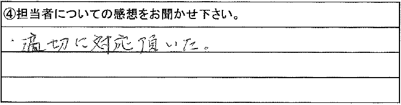 ④担当者についての感想をお聞かせ下さい。
・適切に対応頂いた。